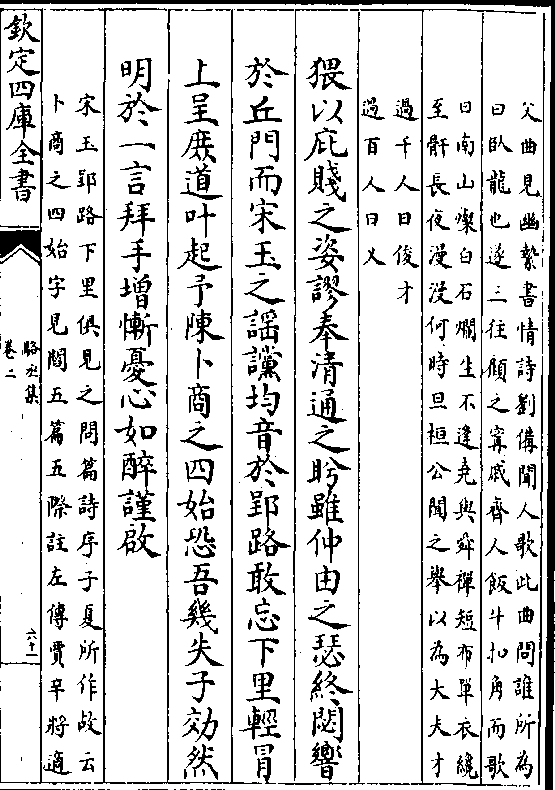 父曲見幽縶書情詩劉備聞人歌此曲問誰所為
曰臥龍也遂三往顧之甯戚齊人飯牛扣角而歌
曰南山燦白石爛生不逢堯與舜禪短布單衣纔
至骭長夜漫漫何時旦桓公聞之舉以為大夫才
過千人曰俊才
過百人曰乂
猥以庇賤之姿謬奉清通之盻雖仲由之瑟終閟響
於丘門而宋玉之謡讜均音於郢路敢忘下里輕冐
上呈庶道叶起予陳卜商之四始恐吾幾失子効然
明於一言拜手増慚憂心如醉謹啟
宋玉郢路下里俱見之問篇詩序子夏所作故云
卜商之四始字見閻五篇五際註左傳賈辛將適
欽定四庫全書
駱丞集
卷二
六十一